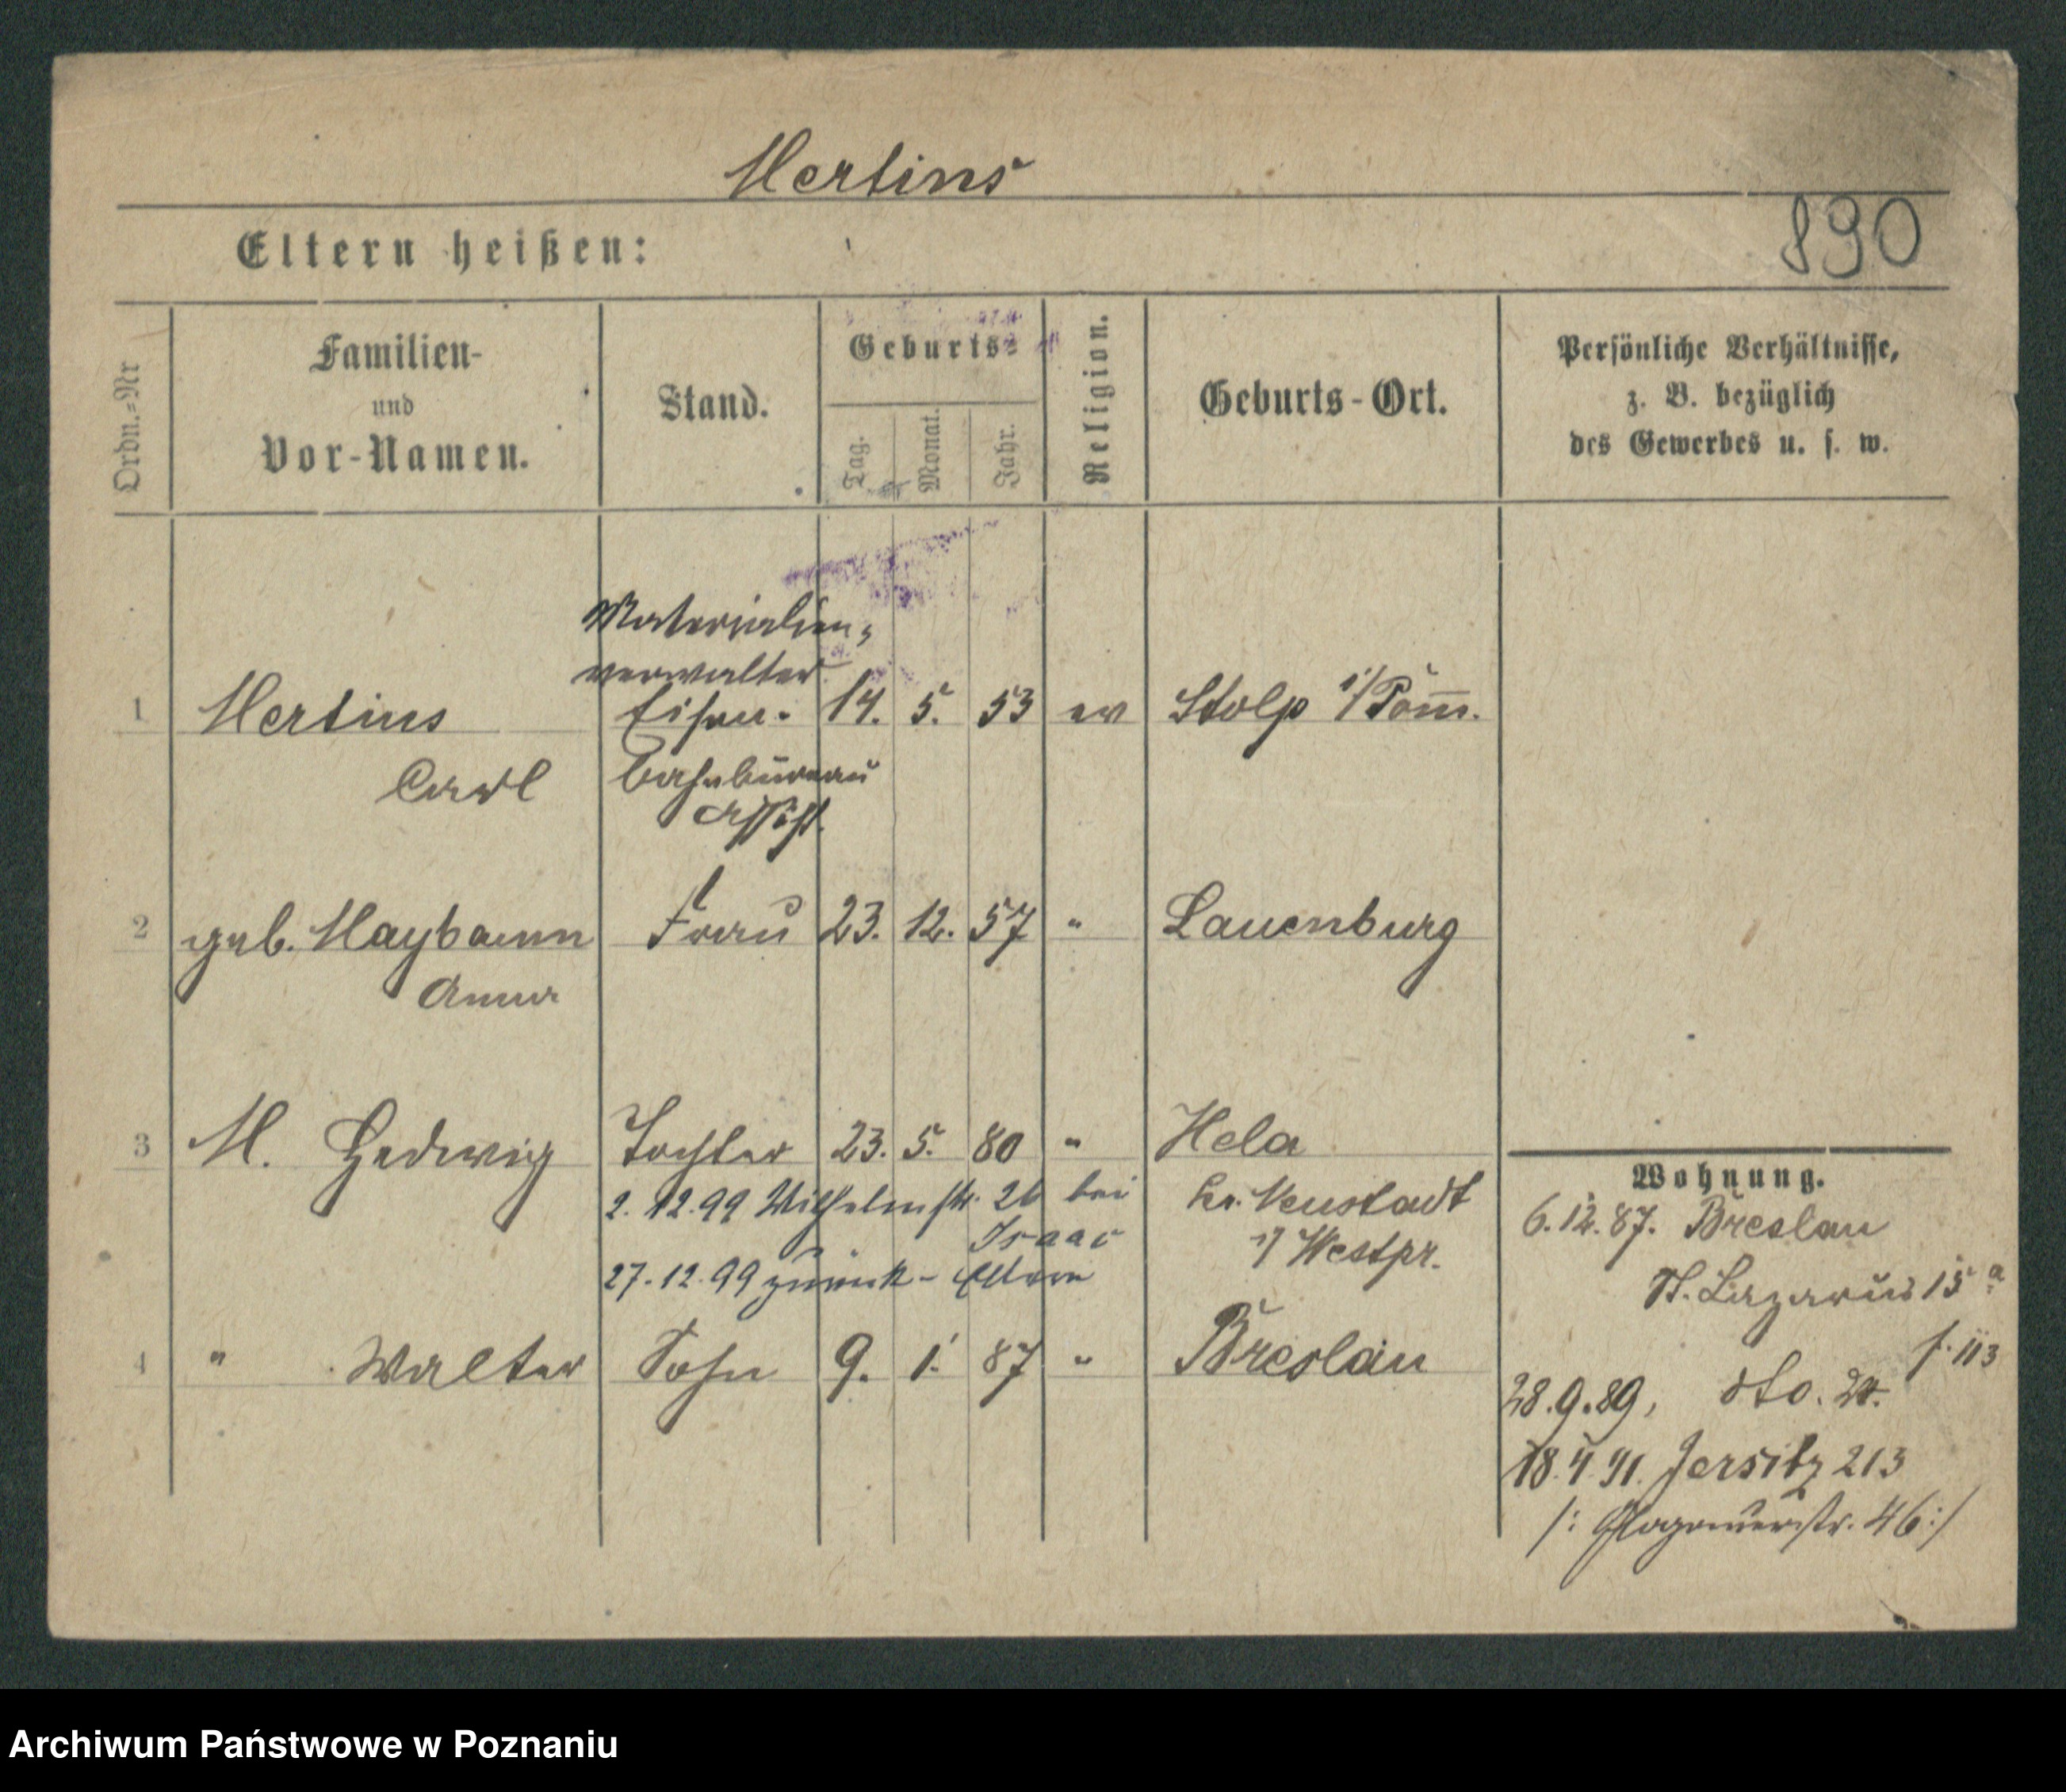 Mertins
890
Eltern heißen:
Ordn.-Nr
Familien-
und
Vor-Namen.
Stand.
Geburts-
Tag.
Monat.
Jahr.
Religion.
Geburts-Ort.
Persönliche Verhältnisse,
z. B. bezüglich
des Gewerbes u. s. w.
Materialien-
verwalter
1 Mertins Eisen- 14. 5. 53 ev Stolp i/Pom̅.
Carl bahnbüreau
Assist.
2 geb. Maybaum Frau 23. 12. 57 " Lauenburg
Anna
3 M. Hedwig Tochter 23. 5. 80 " Hela
2.12.99 Wilhelmstr. 26 bei Kr. Neustadt
Isaac i/ Westpr.
27.12.99 zurück - Eltern
4 " Walter Sohn 9. 1. 87 " Breslau
Wohnung.
6.12.87. Breslau
St. Lazarus 15 a
f. 113
28.9.89, dto.
18.4.91. Jersitz 213
/: Glogauerstr. 46 :/
Archiwum Państwowe w Poznaniu